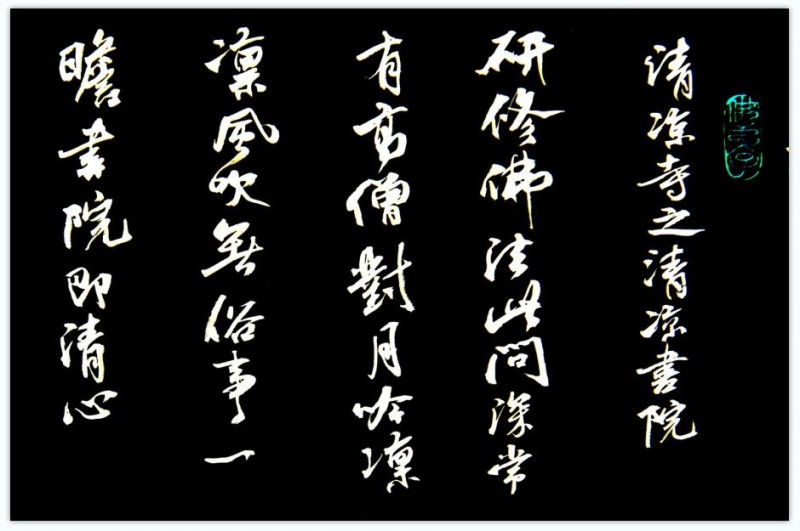 清凉寺之清凉書院
研修佛法此間深常
有高僧對月吟凛
凛風吹無俗事一
瞻書院即清心